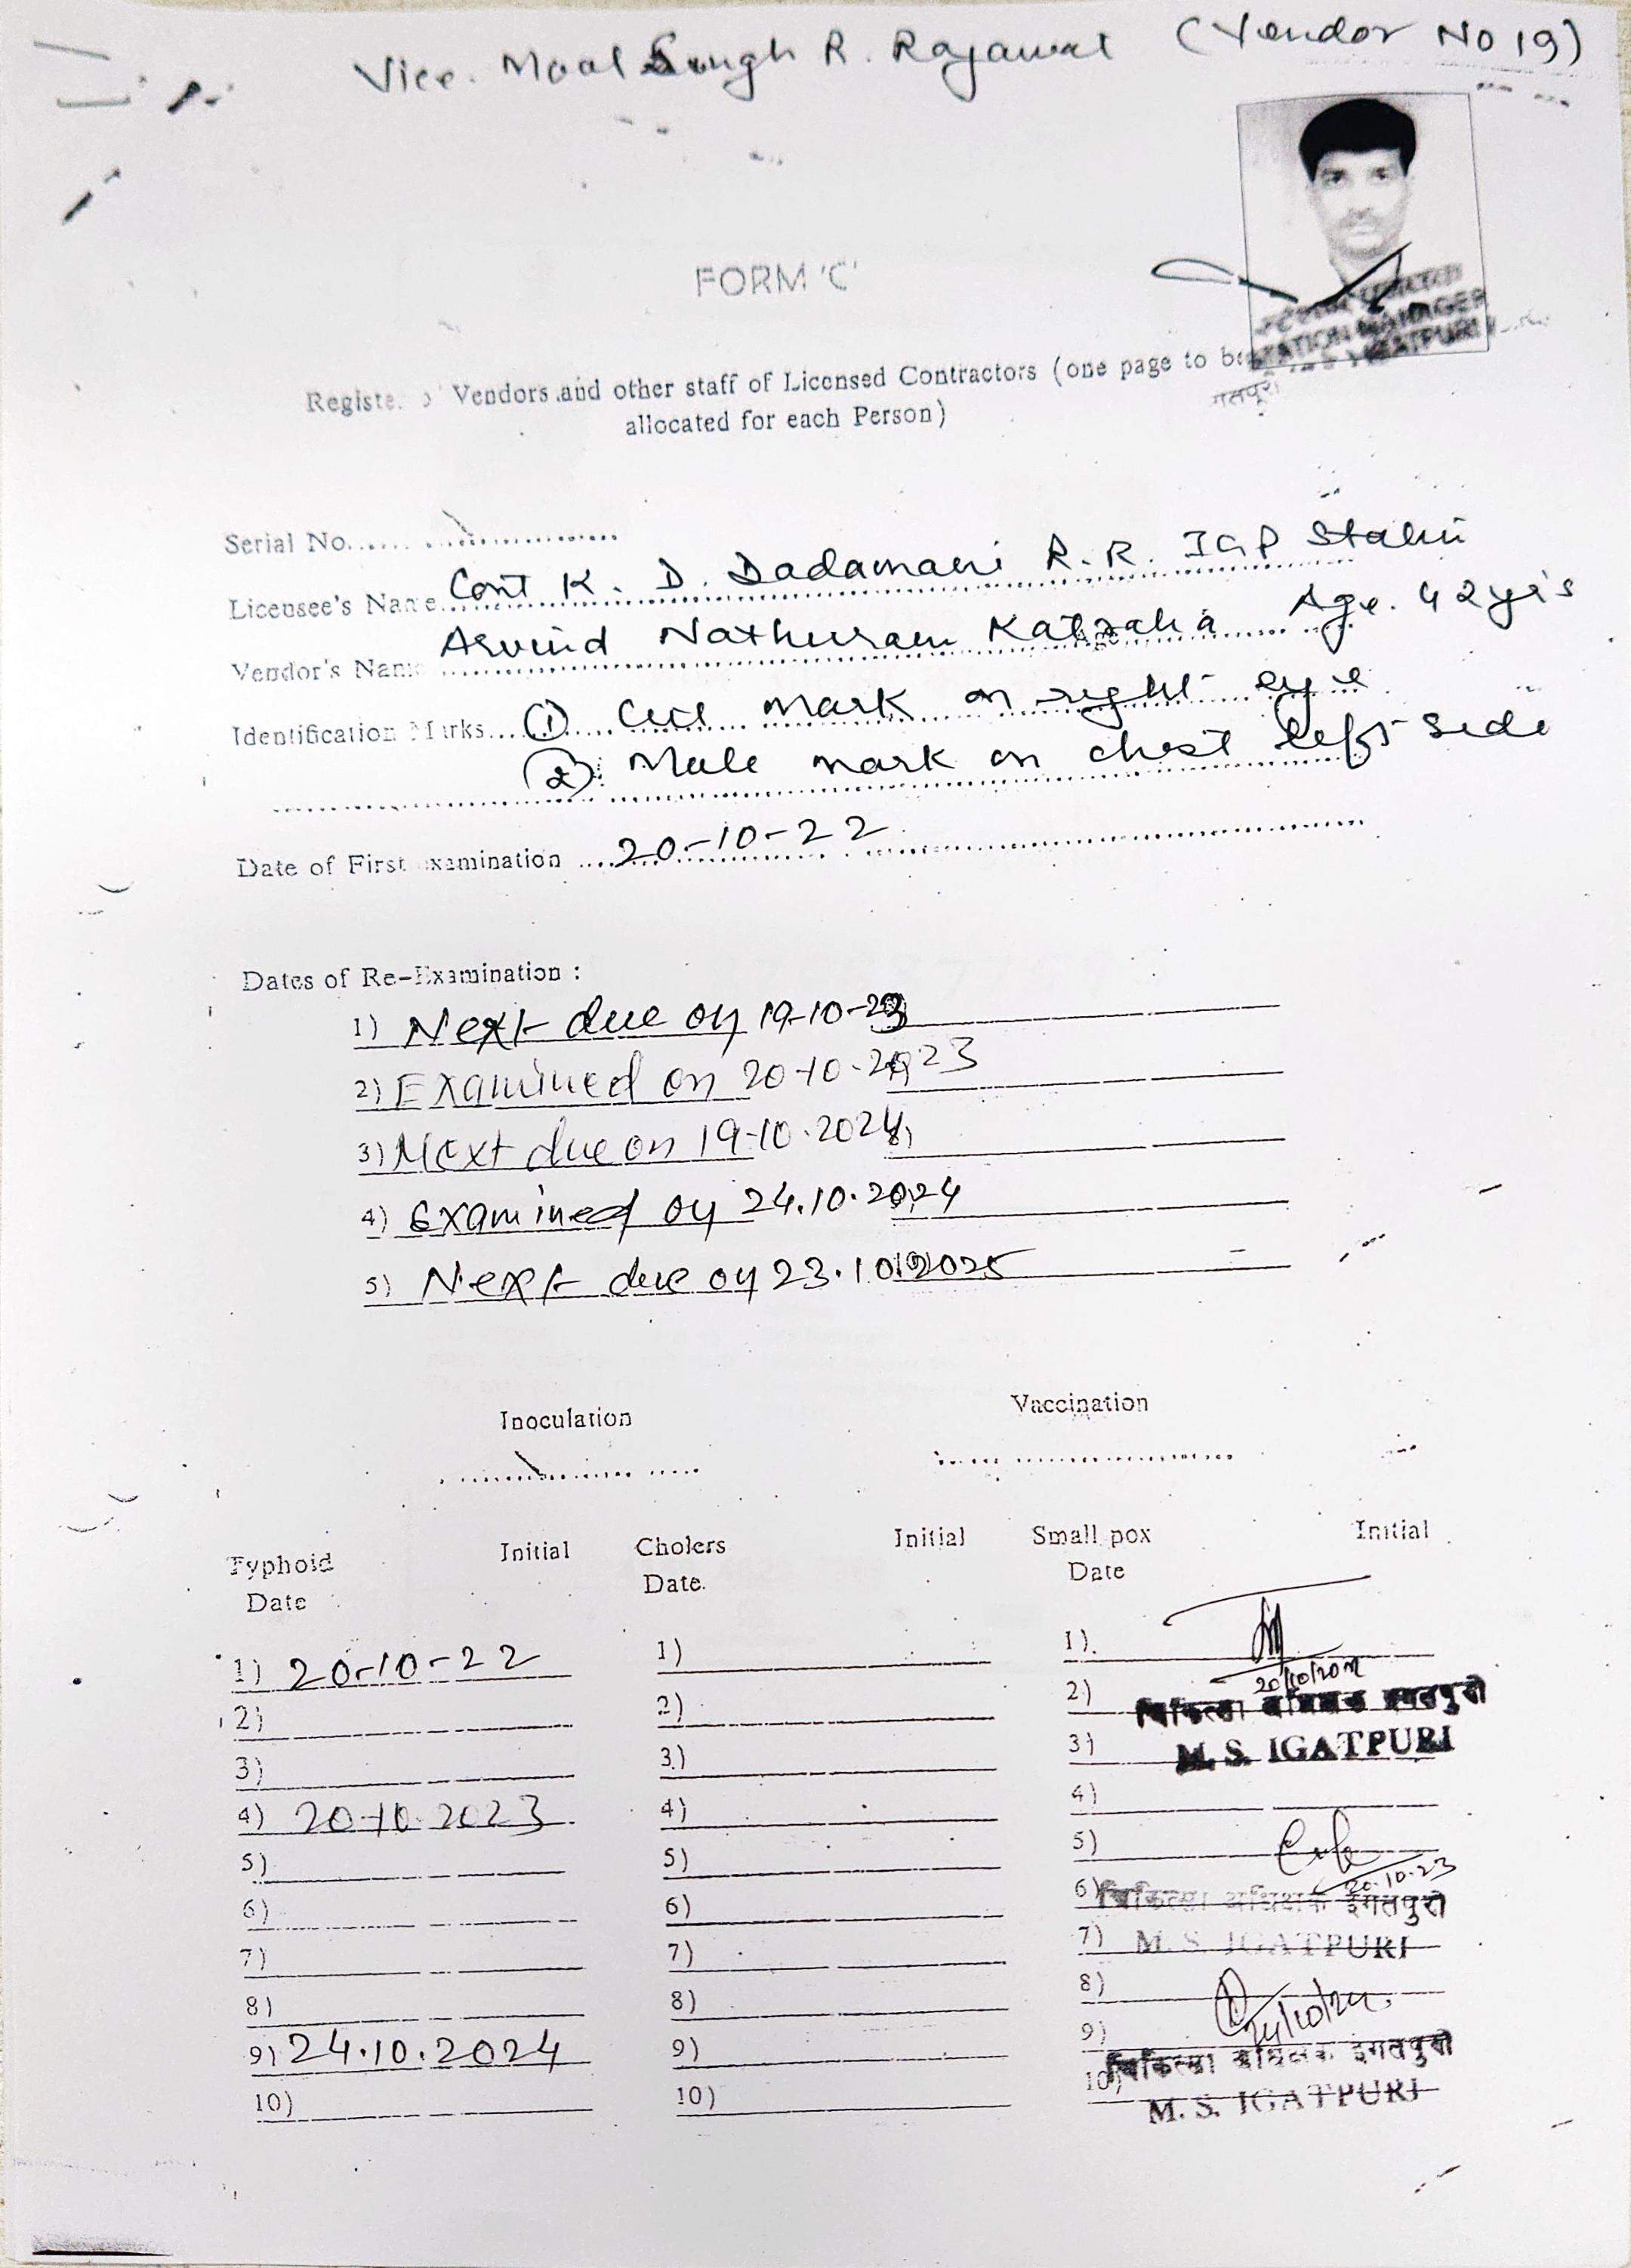 Vice. Maal Singh R. Rajawat (Vendor No 19)
FORM 'C'
STATION MANAGER
IGATPURI
Vendors and other staff of Licensed Contractors (one page to be
allocated for each Person)
Serial No.
Licensee's Name Cont K. D. Dadamani R.R. IGP Statin
Vendor's Name Arvind Nathuram Age. 42 yrs
Identification Marks (1) Cut mark on right eye
(2) Male mark on chest left side
Date of First examination 20-10-22
Dates of Re-Examination :
1) Next due on 19-10-23
2) Examined on 20-10-2023
3) Next due on 19-10-2024
4) Examined on 24.10.2024
5) Next due on 23.10.2025
Inoculation Vaccination
Typhoid Initial Cholers Initial Small pox Initial
Date Date. Date
1) 20-10-22 1) 1)
20/10/20
2) 2) 2) चिकित्सा अधिक्षक इगतपुरी
3) 3) 3) M. S. IGATPURI
4) 20-10-2023 4) 4)
5) 5) 5)
20-10-23
6) 6) 6) चिकित्सा अधिक्षक इगतपुरी
7) 7) 7) M. S. IGATPURI
8) 8) 8)
24/10/24.
9) 24.10.2024 9) 9)
चिकित्सा अधिक्षक इगतपुरी
10) 10) 10)
M. S. IGATPURI